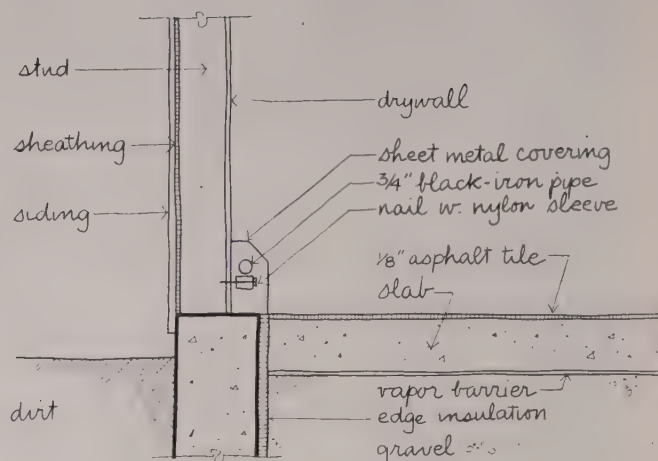 stud
sheathing
siding
drywall
sheet metal covering
3/4" black-iron pipe
nail w. nylon sleeve
1/8" asphalt tile
slab
dirt
vapor barrier
edge insulation
gravel